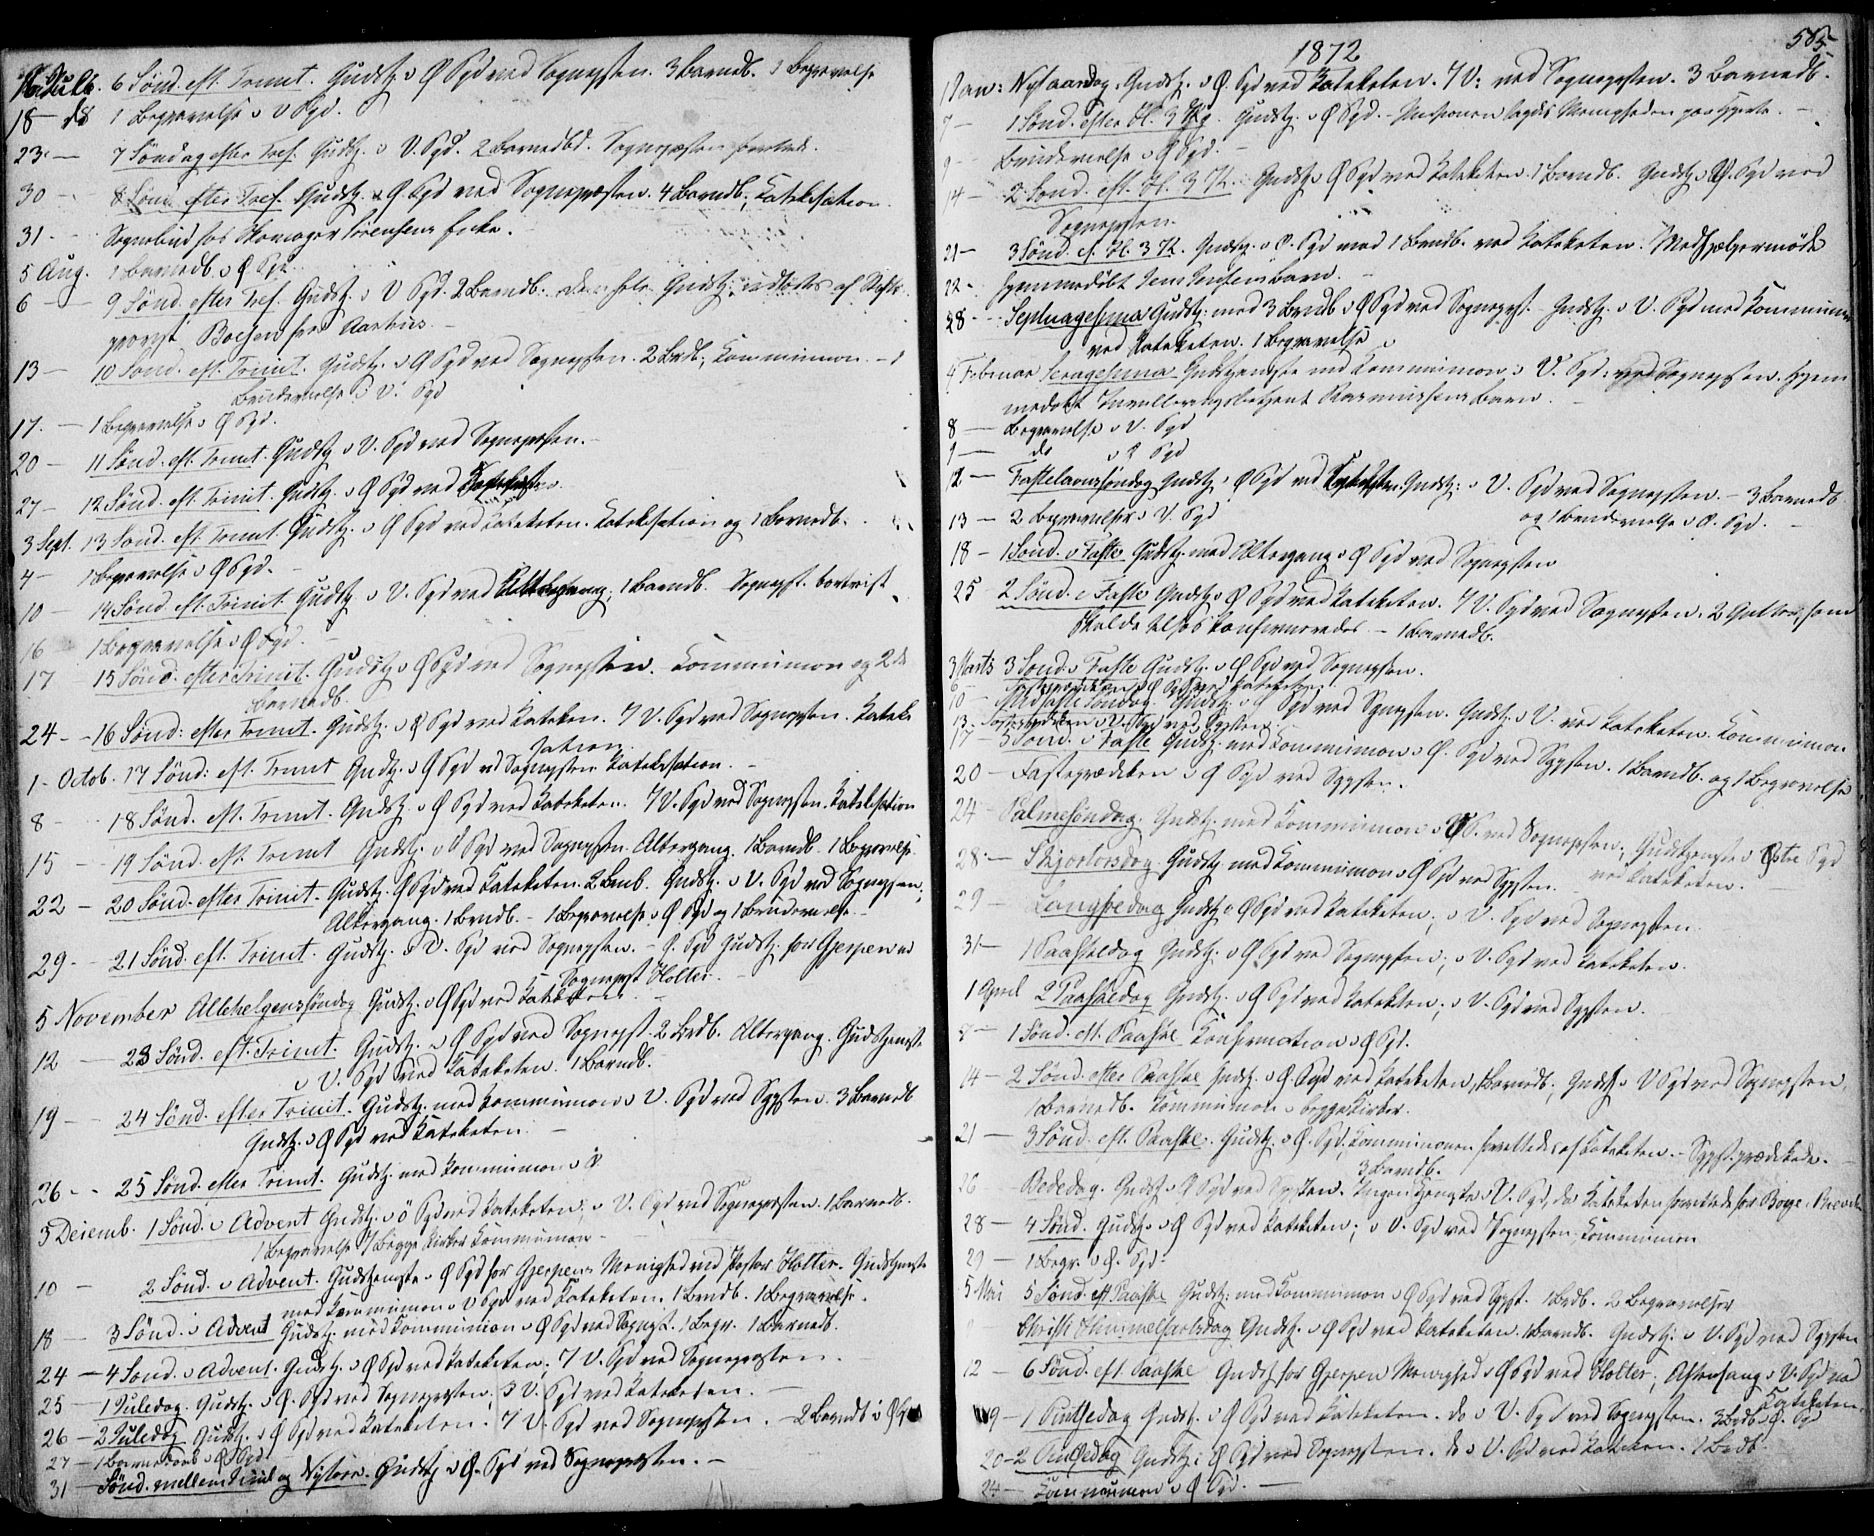 16 Juli. 6 Sønd. eft. Trinit. Gudstj. i Ø Sgd ved Sognepsten. 3 Barnedb. 1 Begravelse
18 — d8 1 Begravelse i V Sgd.
23 — 7 Søndag efter Tref. Gudstj. i V. Sgd. 2 Barnedbd. Sognepræsten
30 — 8 Sønd. efter Tref. Gudstj. i Ø. Sgd ved Sognepræsten. 4 Barndb., Katekisation.
31 — Sognebud hos Skomager Sørensens Enke.
5 Aug. 1 Barnedb. i Ø Sgd.
6 — 9 Sønd. efter Tref. Gudstj. i V Sgd. 2 Barndb. Gudstj. af Stifts
provst Boesen fra Aarhus.
13 — 10 Sønd. eft. Trinit. Gudstj. i Ø Sgd ved Sognepsten. 2 Bdb., Kommunion. — 1
Brudevielse i V. Sgd
17. — 1 Begravelse i Ø Sgd.
20 — 11 Sønd. eft. Trinit. Gudstj. i V. Sgd ved Sognepsten.
27 — 12 Sønd. eft. Trinit. Gudstj. i Ø Sgd ved
3 Sept. 13 Sønd. eft. Trinit. Gudstj. i Ø Sgd ved Kateketen. Katekisation og 1 Barnedb.
4 — 1 Begravelse i Ø Sgd.
10 — 14 Sønd. eft. Trinit. Gudstj. i V. Sgd ved 1 Barndb. Sognepst. bortreist
16 1 Begravelse i Ø Sgd.
17 15 Sønd. efter Trinit. Gudstj. i Ø Sgd ved Sognepsten. Kommunion og 2
Barnedb.
24 — 16 Sønd: efter Trinit. Gudstj. i Ø Sgd ved Kateken. I V. Sgd ved Sognepsten. Kateki
sation.
1 Octob. 17 Sønd: eft. Trinit Gudtj. i Ø Sgd vd Sognepsten Katekisation. —
8 — 18 Sønd. eft. Trinit. Gudstj. i Ø Sgd ved Kateketen. I V. Sgd ved Sognepsten. Katekisation
15 — 19 Sønd. eft. Trinit Gudstj. i V Sgd ved Sognepsten Altergang. 1 Barndb. 1 Begravelse
22 — 20 Sønd. efter Trinit. Gudstj. Ø Sgd ved Kateketen. 2 Bnb. Gudstj. i V. Sgd ved Sognepsten;
Altergang. 1 Brndb. — 1 Begravelse i Ø Sgd og 1 Brudevielse. —
29 — 21 Sønd. eft. Trinit. Gudstj. i V. Sgd ved Sognepsten. — Ø. Sgd Gudstj. for Gjerpen ved
Sognepst Holter. —
5 November Allehelgenssøndag Gudstj. i Ø Sgd ved Kateketen.
12 — 23 Sønd. eft. Trinit. Gudstj. i Ø Sgd ved Sognepst. 2 Brdb. Altergang. Gudstjeneste
i V. Sgd ved Kateketen. 1 Barndb.
19 — 24 Sønd. efter Trinit. Gudstj. med Kommunion i V. Sgd ved Sgpsten. 3 Barndb
Gudstj. i Ø Sgd ved Kateketen. —
26 — 25 Sønd. efter Trinit. Gudstj: med Kommunion i V.
3 Decemb. 1 Sønd. i Advent Gudstj. i Ø Sgd ved Kateketen; i V. Sgd ved Sognepræsten. 1 Barnedb.
1 Begravelse I Begge Kirker Kommunion —
10 — 2 Sønd. i Advent. Gudstjeneste i Ø Sgd for Gjerpens Menighed ved Pastor Holter. Gudstjeneste
med Kommunion i V Sgd ved Kateketen. 1 Brndb. 1 Begravelse.
18 — 3 Sønd. i Advent Gudstj. med Kommunion i Ø Sgd ved Sognepst. 1 Begr. 1 Barnedb.
24 — 4 Sønd. i Advent. Gudstj. i Ø Sgd ved Kateketen; I V. Sgd ved Sognepræsten.
25 — 1 Juledag. Gudstj. i Ø. Sgd ved Sognepræsten; I V. Sgd ved Kateketen. —
26 — 2 Juledag Gudstj. i Ø Sgd ved Kateketen. I V. Sgd ved Sognepsten. — 2 Barndb i Ø Sgd
27 — 1 Barnedaab i Ø Sgd
31 — Sønd. mellem Juul og Nytaar. Gudstj. i Ø. Sgd ved Sognepræsten. —
585
1872
1 Jan: Nytaarsdag. Gudstj. i Ø. Sgd ved Kateketen. I V: ved Sognepsten. 3 Barnedb.
7 — 1 Sønd. efter H. 3 Kg. Gudstj. i Ø Sgd. Menigheden
9 — Brudevielse i Ø Sgd. —
14 — 2 Sønd. eft. H. 3 K. Gudstj. i Ø Sgd ved Kateketen. 1 Barndb. Gudstj. i V. Sgd ved
Sognepsten.
21 — 3 Sønd. e. H. 3 K. Gudstj. i Ø. Sgd med 1 Brndb. ved Kateketen. Medhjælpermøde
22 — Hjemmedøbt Jens Jensens Barn. —
28 — Septuagesima Gudstj: med 3 Brndb i Ø Sgd ved Sognepst. Gudstj. i V. Sgd med Kommunion
ved Kateketen. 1 Begravelse
4 Februar Sexagesima Gudstjeneste med Kommunion i V. Sgd. ved Sognepsten. Hjem
medøbt Rasmussens Barn.
8 — Begravelse i V. Sgd
9 — do i Ø Sgd
12 — Fastelavnssøndag Gudstj. i Ø Sgd ved Kateketen Gudstj: i V. Sgd ved Sognepsten. — 3 Barnedb
og 1 Brudevielse i Ø. Sgd. —
13 — 2 Begravelser i V. Sgd
18 — 1 Sønd. i Faste Gudstj. med Altergang i Ø Sgd ved Sognepsten
25 2 Sønd. i Faste Gudstj. i Ø Sgd ved Kateketen. I V. Sgd ved Sognepsten. 2 Gutter, som
skulde tilsøs konfirmeredes — 1 Barnedb.
3 Marts 3 Sønd. i Faste Gudstj. i Ø Sgd ved Sognepsten.
6 — Fasteprædiken i Ø Sgd ved Kateketen
10 — Midfaste Søndag. Gudstj. i Ø Sgd ved Sgnepsten. Gudstj. i V. ved Kateketen. Kommunion
13 — Fasteprædiken i V. Sgd ved Sgpsten.
17 — 5 Sønd. i Faste Gudstj: med Kommunion i Ø. Sgd ved Sgpsten. 1 Barndb. og 1 Begravelse
20 — Fasteprædiken i Ø Sgd ved Sgpsten.
24 — Palmesøndag. Gudstj. med Kommunion i Ø S. ved Sognepsten; Gudstjeneste i Østre Sgd
ved Kateketen.
28 — Skjærtorsdag. Gudstj med Kommunion i Ø Sgd ved Sgpsten.
29 — Langfredag Gudstj i Ø Sgd ved Kateketen; i V. Sgd ved Sognepsten
31 — 1 Paaskedag Gudstj. i Ø Sgd ved Sognepsten; i V. Sgd ved Kateketen.
1 April 2 Paaskedag Gudstj. i Ø Sgd ved Kateketen; i V. Sgd ved Sgpsten.
8 — 1 Sønd. eft. Paaske Konfirmation i Ø Sgd.
14 — 2 Sønd. efter Paaske Gudstj. i Ø. Sgd ved Kateketen, 1 Barndb; Gudstj. i V Sgd ved Sognepsten,
1 Barnedb. Kommunion i begge Kirker.
21 — 3 Sønd. eft. Paaske. Gudstj. i Ø. Sgd, Kommunionen forrettedes af Kateketen. — Sgpst. prædikede.
3 Barndb.
26 — Bededag. Gudstj. i Ø Sgd ved Sgpsten. Ingen Tjeneste i V. Sgd, da Kateketen forrettede for Boye i Brevik
28 — 4 Sønd. Gudstj. i Ø Sgd ved Kateketen; i V. Sgd ved Sognepsten Kommunion
29 — 1 Begr. i Ø. Sgd.
5 Mai 5 Sønd. eft Paaske Gudstj: med Kommunion i Ø Sgd ved Sgpst. 1 Bdb. 2 Begravelser
Christi Himmelfartsdag Gudstj. i Ø Sgd ved Kateketen. 1 Barndb. Gudstj. i V. Sgd ved Sgpsten
12 — 6 Sønd. eft. Paaske Gudstj. for Gjerpen Menighed i Ø Sgd ved Holter; Aftensang i V. Sgd ved
Kateketen.
19 — 1 Pintsedag Gudstj. i Ø Sgd ved Kateketen. do i V. Sgd ved Sognepsten. 3 Bdb i Ø. Sgd
20 — 2 Pintsedag Gudstj: i Ø Sgd ved Sognepsten. do i V. Sgd ved Kateketen. 1 Bndb.
24 — Kommunion i Ø Sgd. —